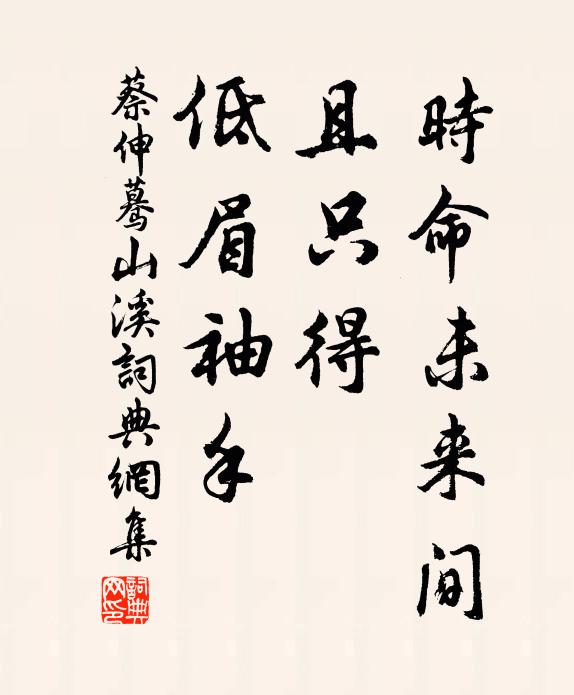 時命未来间
且只得
低眉袖手
蔡伸蓦山溪詞典網集
詞典网印